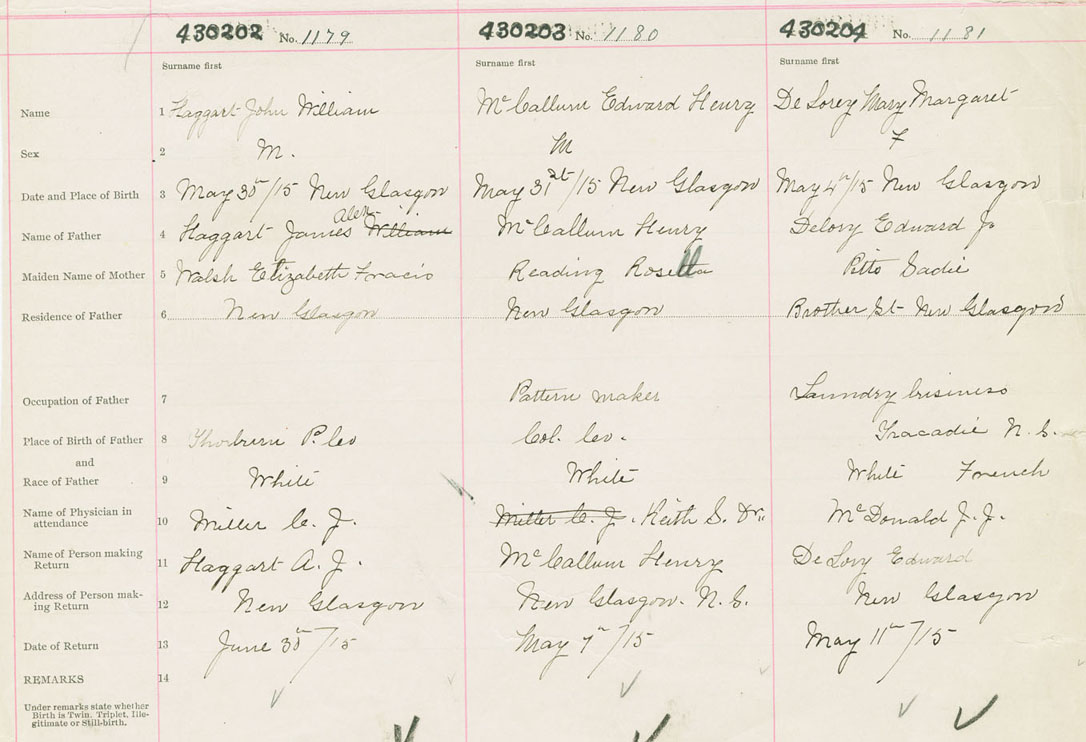 430202 No. 1179 430203 No. 1180 430204 No. 1181
Surname first Surname first Surname first
Name 1 Haggart John William McCallum Edward Henry De Lorey Mary Margaret
Sex 2 M. M F
Date and Place of Birth 3 May 30th/15 New Glasgow May 31st/15 New Glasgow May 4th/15 New Glasgow
Alex
Name of Father 4 Haggart James William McCallum Henry Delory Edward J.
Maiden Name of Mother 5 Walsh Elizabeth Reading Rosetta Sadie
Residence of Father 6 New Glasgow New Glasgow Brother St New Glasgow
Occupation of Father 7 Pattern maker Laundry business
Place of Birth of Father 8 Thorburn P. Co Col. Co. Tracadie N. S.
and
Race of Father 9 White White White French
Name of Physician in
attendance 10 Miller C. J. Miller C. J. Keith S. Dr. McDonald J. J.
Name of Person making
Return 11 Haggart A. J. McCallum Henry De Lory Edward
Address of Person mak-
ing Return 12 New Glasgow New Glasgow. N. S. New Glasgow
Date of Return 13 June 30th/15 May 7th/15 May 11th/15
REMARKS 14
Under remarks state whether
Birth is Twin, Triplet, Ille-
gitimate or Still-birth.